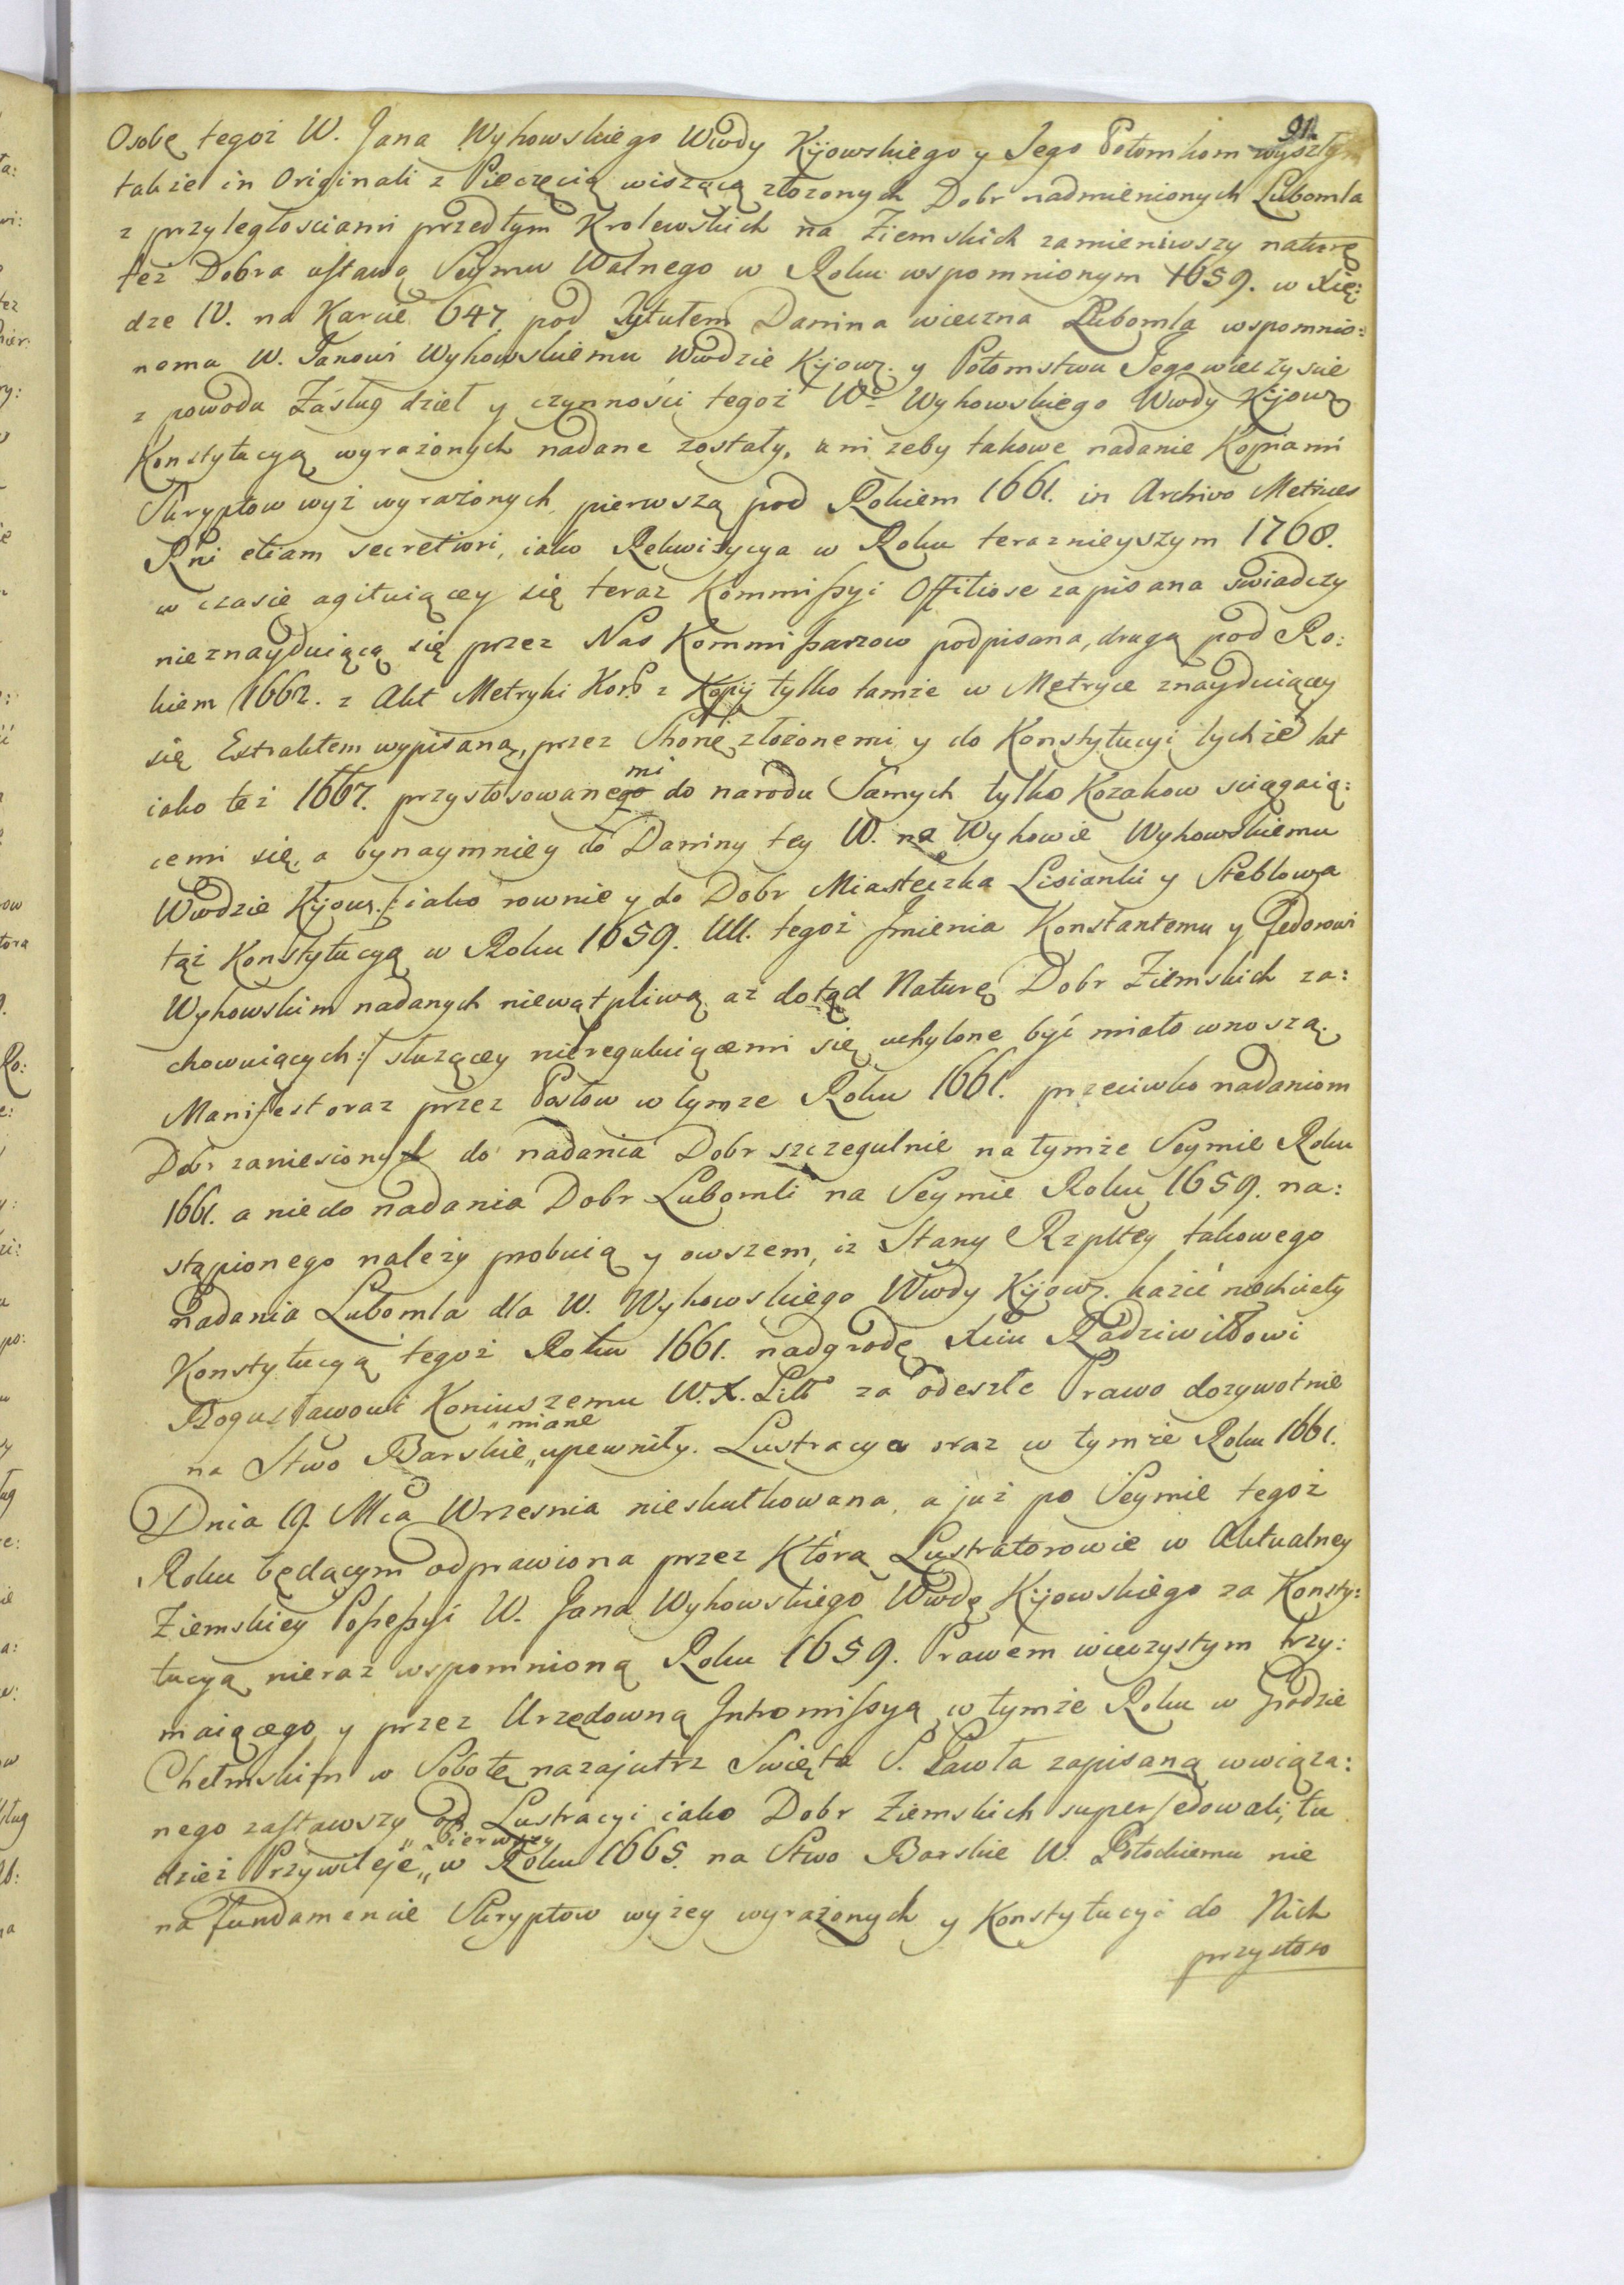 91.
Osobę tegoż W. Jana Wyhowskiego Wwdy Kijowskiego y Jego Potomkom wyszłym
takżе in Originali z Pieczęcią wiszącą złozonych Dobr nadmienionych Lubomla
z przyległosciami przedtym Krolewskich na Ziemskich zamieniwszy naturę
też Dobra ustawą Seymu Walnego w Roku wspomnionym 1659. w Xię:
dze IV. na Karcie 647. pod Tytułem Danina wieczna Lubomla wspomnio:
nemu W. Janowi Wyhowskiemu Wwdzie Kijow. y Potomstwu Jego wieczyscie
z powodu Zasług dzieł y czynności tegoż Wo Wyhowskiego Wwdy Kijow
Konstytucyą wyrażonych nadane zostały, ani zeby takowe nadanie Kopiami
Skryptow wyż wyrażonych, pierwszą pod Rokiem 1661. in Archivo Metrices
Rni etiam secretiori, iako Rekwizycya w Roku teraznieyszym 1768.
w czasie agituiącey się teraz Kommissyi Offitiose zapisana swiadczy
nieznayduiącą się przez Nas Kommissarzow podpisana, drugą pod Ro:
kiem 1662. z Akt Metryki Kor z Kopij tylko tamże w Metryce znayduiącey
się Extraktem wypisaną, przez Stronę złożonemi y do Konstytucyi tychże lat
iako też 1667. przystosowanego mi do narodu Samych tylko Kozakow sciągaią:
cemi się, a bynaymniey do Daniny tey W. na Wyhowie Wyhowskiemu
Wwdzie Kijow. /: iako rownie y do Dobr Miasteczka Lisianki y Steblowa
tąż Konstytucyą w Roku 1659. UU. tegoż Imienia Konstantemu y Fedorowi
Wyhowskim nadanych niewątpliwą aż dotąd Naturę Dobr Ziemskich za:
chowuiących :/ służącey niereguluiącemi się uchylone być miało wnoszą.
Manifest oraz przez Posłow w tymze Roku 1661. przeciwko nadaniom
Dobr zaniesiony do nadania Dobr szczegulnie na tymże Seymie Roku
1661. a nie do nadania Dobr Lubomli na Seymie Roku 1659. na:
stąpionego należy probuią y owszem, iz Stany Rzpltey takowego
Nadania Lubomla dla W. Wyhowskiego Wwdy Kijow. kazić niechciały
Konstytucyą tegoż Roku 1661. nadgrodę Xciu Radziwiłłowi
Bogusławowi Koniuszemu W. X. Litt za odeszłe Prawo dozywotnie
na Stwo Barskie „ miane upewniły. Lustracya oraz w tymże Roku 1661.
Dnia 19. Mca Wrzesnia nieskutkowana, a już po Seymie tegoż
Roku będącym odprawiona przez Którą Lustratorowie w Aktualney
Ziemskiey Possessyi W. Jana Wyhowskiego Wwdę Kijowskiego za Konsty:
tucyą nieraz wspomnioną Roku 1659. Prawem wieczystym trzy:
maiącego y przez Urzędowną Intromissyą w tymże Roku w Grodzie
Chełmskim w Sobotę nazajutrz Swięta S. Pawła zapisaną wwiąza:
nego zastawszy od Lustracyi iako Dobr Ziemskich supersedowali, tu
dzież Przywileje „ pierwszy w Roku 1665. na Stwo Barskie W. Potockiemu nie
na fundamencie Skryptow wyżey wyrażonych y Konstytucyi do Nich
przystoso